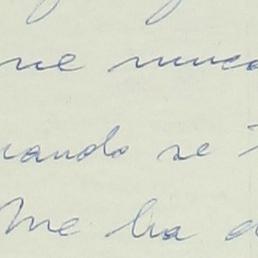 me nunca
cuando se
Me ha